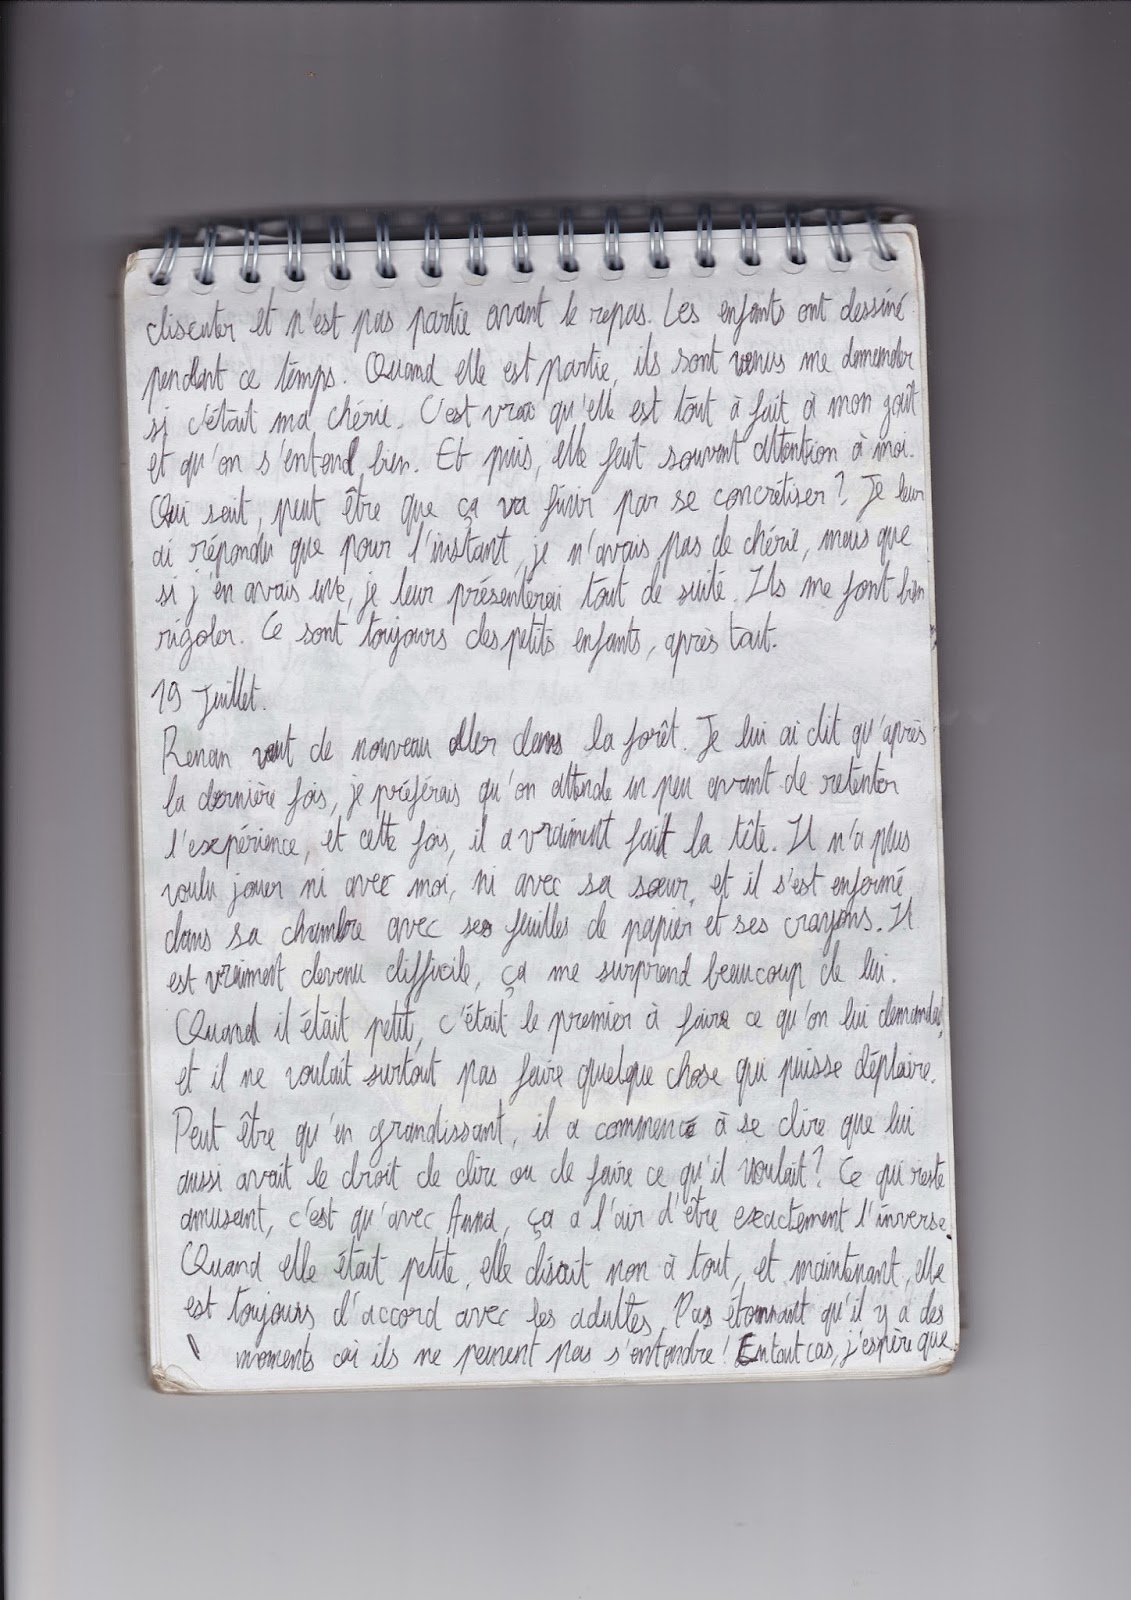 discuter et n'est pas partie avant le repas. Les enfants ont dessiné
pendant ce temps. Quand elle est partie, ils sont venus me demander
si c'était ma chérie. C'est vrai qu'elle est tout à fait à mon goût
et qu'on s'entend bien. Et puis, elle fait souvent attention à moi.
Qui sait, peut être que ça va finir par se concrétiser? Je leur
ai répondu que pour l'instant, je n'avais pas de chérie, mais que
si j'en avais une, je leur présenterai tout de suite. Ils me font bien
rigoler. Ce sont toujours des petits enfants, après tout.
19 Juillet.
Renan veut de nouveau aller dans la forêt. Je lui ai dit qu'après
la dernière fois, je préférais qu'on attende un peu avant de retenter
l'expérience, et cette fois, il a vraiment fait la tête. Il n'a plus
voulu jouer ni avec moi, ni avec sa sœur, et il s'est enfermé
dans sa chambre avec ses feuilles de papier et ses crayons. Il
est vraiment devenu difficile, ça me surprend beaucoup de lui.
Quand il était petit, c'était le premier à faire ce qu'on lui demandait,
et il ne voulait surtout pas faire quelque chose qui puisse déplaire.
Peut être qu'en grandissant, il a commencé à se dire que lui
aussi avait le droit de dire ou de faire ce qu'il voulait? Ce qui reste
amusant, c'est qu'avec Anna, ça a l'air d'être exactement l'inverse.
Quand elle était petite, elle disait non à tout, et maintenant, elle
est toujours d'accord avec les adultes. Pas étonnant qu'il y a des
moments où ils ne peuvent pas s'entendre! En tout cas, j'espère que